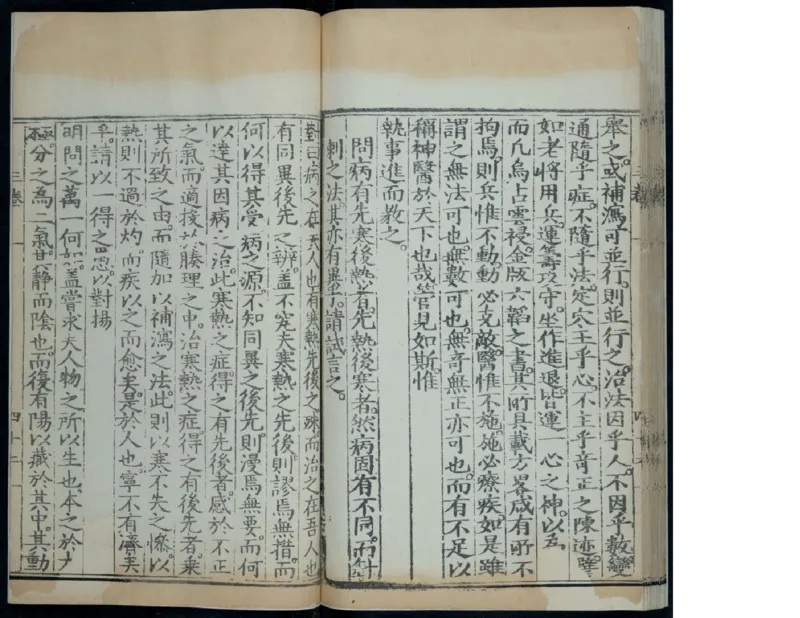 舉之或補瀉可並行則並行之治法因乎人不因乎數變
通隨乎症不隨乎法定穴主乎心不主乎奇正之陳迹譬
如老將用兵運籌攻守坐作進退皆運一心之神以為
而凡鳥占雲祲金版六韜之書其所具載方畧咸有所不
拘焉則兵惟不動動必克敵醫惟不施施必療疾如是雖
謂之無法可也無數可也無奇無正亦可也而有不足以
稱神醫於天下也哉管見如斯惟
執事進而教之
問病有先寒後熱者先熱後寒者然病固有不同而針
刺之法其亦有異乎請試言之
對曰病之在夫人也有寒熱先後之殊而治之在吾人也
有同異後先之辨蓋不究夫寒熱之先後則謬焉無措而
何以得其受病之源不知同異之後先則漫焉無要而何
以達其因病之治此寒熱之症得之有先後者感於不正
之氣而適投於腠理之中治寒熱之症得之有後先者乘
其所致之由而隨加以補瀉之法此則以寒不失之慘以
熱則不過於灼而疾以之而愈矣是於人也寧不有濟矣
乎請以一得之愚以對揚
明問之萬一何如蓋嘗求夫人物之所以生也本之於太
極分之為二氣其靜而陰也而復有陽以藏於其中其動
三卷
四十二